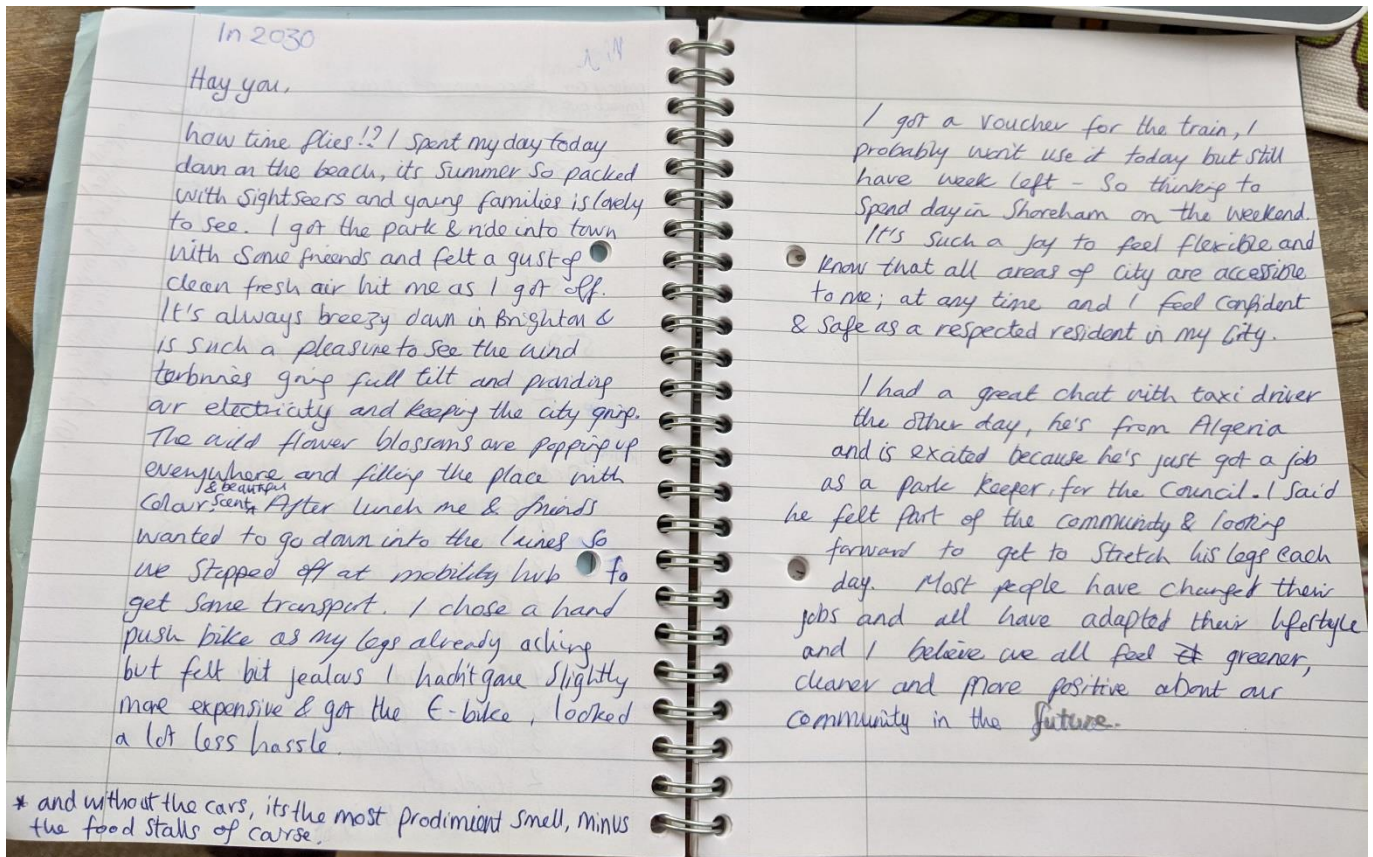 In 2030
Hay you,
how time flies!? I spent my day today
down on the beach, its Summer so packed
with sightseers and young families is lovely
to see. I got the park & ride into town
with some friends and felt a gust of
clean fresh air hit me as I got off.
It's always breezy down in Brighton &
is such a pleasure to see the wind
torbnries going full tilt and providing
our electricity and keeping the city going.
The wild flower blossoms are popping up
everywhere and filling the place with
& beautiful
colour scent* After lunch me & friends
wanted to go down into the laines so
we stepped off at mobility hub to
get some transport. I chose a hand
push bike as my legs already aching
but felt bit jealous I hadn't gone slightly
more expensive & got the E-bike, looked
a lot less hassle.
* and without the cars, its the most prodimient smell, minus
the food stalls of course.
I got a voucher for the train, I
probably won't use it today but still
have week left - So thinking to
spend day in Shoreham on the weekend.
It's such a joy to feel flexible and
know that all areas of city are accessible
to me; at any time and I feel confident
& safe as a respected resident in my City.
I had a great chat with taxi driver
the other day, he's from Algeria
and is exated because he's just got a job
as a park keeper, for the Council. I said
he felt part of the community & looking
forward to get to stretch his legs each
day. Most people have changed their
jobs and all have adapted their lifestyle
and I believe we all feel greener,
cleaner and more positive about our
community in the future.